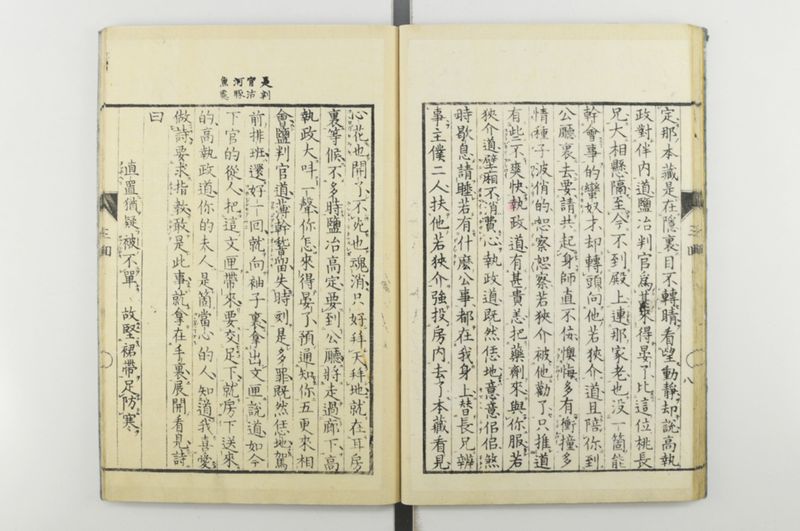 定那本藏是在隱裏目不轉睛看望動靜却說高執
政對伴內道鹽冶判官爲甚來得晏了比這位桃長
兄大相懸隔至今不到殿上連那家老也没一箇能
幹會事的蠻奴才却轉頭向他若狹介道且陪你到
公廳裏去要請共起身師直不伎懊悔多有衝撞多
情種子波俏的恕察恕察若狹介被他勸了只推道
有些不爽快執政道有甚貴恙把藥劑來與你服若
狹介道壁厢不消費心執政道既然恁地意意佀佀煞
時歇息請睡若有什麽公事都在我身上替長兄辨
事主僕二人扶他若狹介強投房内去了本藏看見
心花也開了不死也魂消只好拜天拜地就在耳房
裏等候不多時鹽冶高定要到公廳將走過廊下高
執政大呌一聲你怎來得晏了預通知你五更來相
會鹽判官道薄幹暫留失時刻是多罪既然恁地駕
前排班還好一回就向袖子裏拿出文匣說道如今
下官的從人把這文匣帶來要交足下就房下送來
的高執政道你的夫人是箇當心的人知道我喜愛
做詩要求指教敢是此事就拿在手裏展開看見詩
曰
値置微疑被不單 故堅裙帶足防寒
是判
官沽
河豚
魚毒